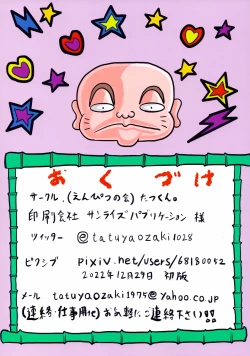 おくづけ
サークル.(えんぴつの会)たつくん。
印刷会社 サンライズパブリケーション 様
ツイッター @tatuyaozaki1028
ピクシブ pixiv.net/users/68180052
2022年12月29日 初版
メール tatuyaozaki1975@yahoo.co.jp
(連絡・仕事用に)お気軽にご連絡下さい!!